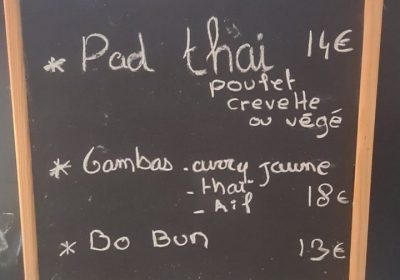 * Pad thai 14€
poulet
crevette
ou végé
* Gambas - curry jaune
- thaï
- Ail 18€
* Bo Bun 13€